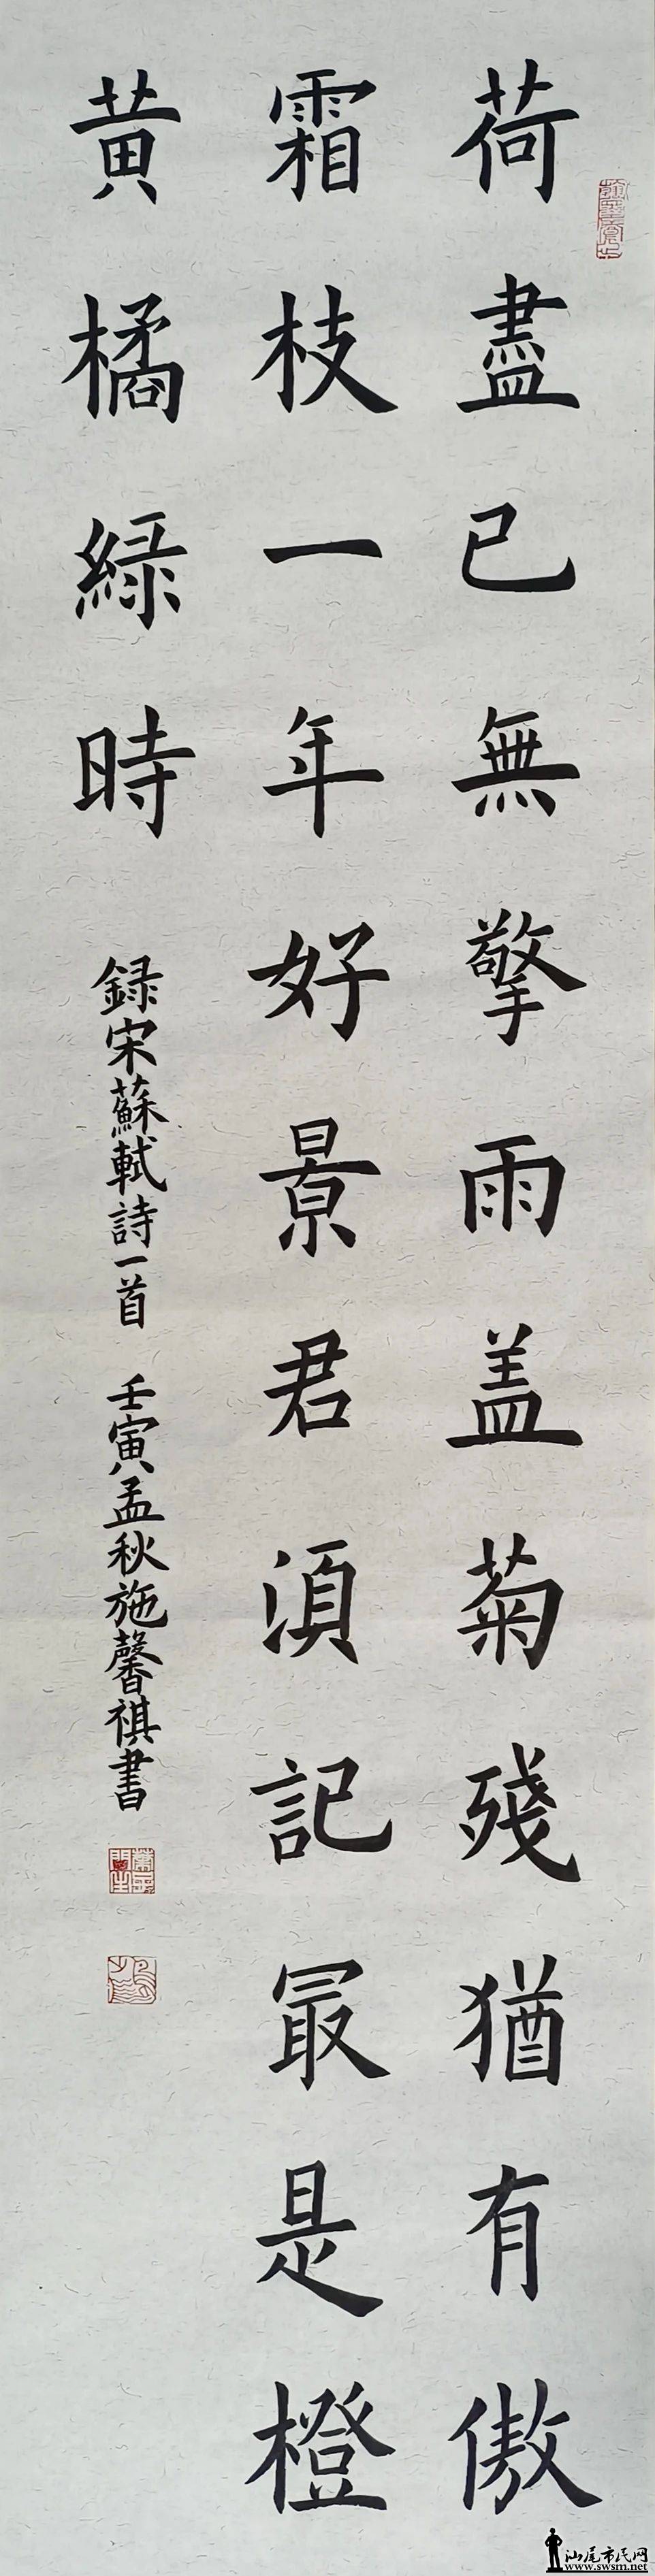 荷盡已無擎雨盖菊殘猶有傲
霜枝一年好景君須記最是橙
黄橘緑時
録宋蘇軾詩一首 壬寅孟秋施馨祺書
汕尾市民网
www.swsm.net